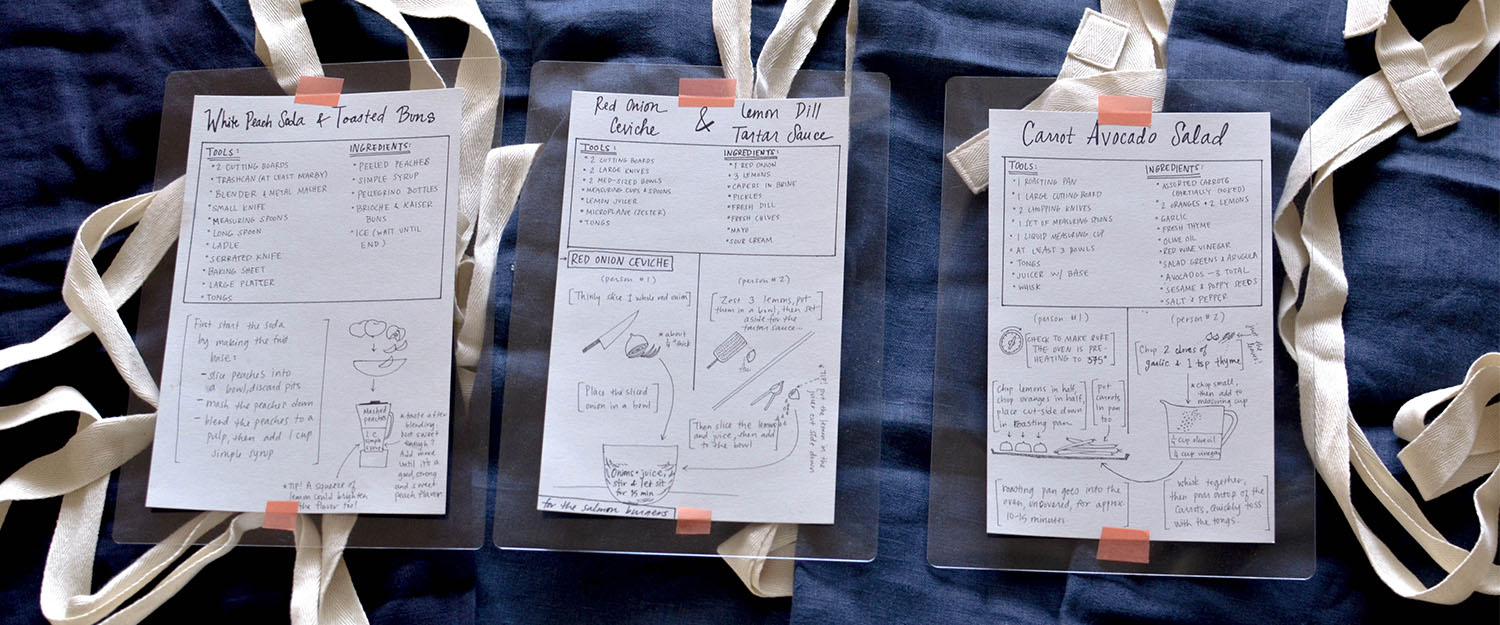 White Peach Soda & Toasted Buns
TOOLS:
*2 CUTTING BOARDS
*TRASHCAN (AT LEAST NEARBY)
*BLENDER & METAL MASHER
*SMALL KNIFE
*MEASURING SPOONS
*LONG SPOON
*LADLE
*SERRATED KNIFE
*BAKING SHEET
*LARGE PLATTER
*TONGS
INGREDIENTS:
*PEELED PEACHES
*SIMPLE SYRUP
*PELLEGRINO BOTTLES
*BRIOCHE & KAISER
BUNS
*ICE (WAIT UNTIL
END)
First start the soda
by making the fruit
base:
- slice peaches into
a bowl, discard pits
- mash the peaches down
- blend the peaches to a
pulp, then add 1 cup
simple syrup
Mashed
peaches
1 c.
simple
*taste after
blending.
Not sweet
enough?
Add more
until it's a
good, strong
and sweet
peach flavor.
*TIP! A squeeze of
lemon could brighten
the flavor too!
Red Onion
Ceviche
&
Lemon Dill
Tartar Sauce
TOOLS:
*2 CUTTING BOARDS
*2 LARGE KNIVES
*2 MED-SIZED BOWLS
*MEASURING CUPS & SPOONS
*LEMON JUICER
*MICROPLANE (ZESTER)
*TONGS
INGREDIENTS:
*1 RED ONION
*3 LEMONS
*CAPERS IN BRINE
*PICKLES
*FRESH DILL
*FRESH CHIVES
*MAYO
*SOUR CREAM
RED ONION CEVICHE
(person #1)
[Thinly slice 1 whole red onion]
*about
¼" thick
[Place the sliced
onion in a bowl]
(person #2)
[Zest 3 lemons, put
them in a bowl, then set
aside for the
tartar sauce...
[Then slice the lemons
and juice, then add
to the bowl]
*TIP! put the lemon in the
juicer cut side down
Onions + juice,
stir & let sit
for 35 min
for the salmon burgers
Carrot Avocado Salad
TOOLS:
*1 ROASTING PAN
*1 LARGE CUTTING BOARD
*2 CHOPPING KNIVES
*1 SET OF MEASURING SPOONS
*1 LIQUID MEASURING CUP
*AT LEAST 3 BOWLS
*TONGS
*JUICER W/ BASE
*WHISK
INGREDIENTS:
*ASSORTED CARROTS
(PARTIALLY COOKED)
*2 ORANGES + 2 LEMONS
*GARLIC
*FRESH THYME
*OLIVE OIL
*RED WINE VINEGAR
*SALAD GREENS & ARUGULA
*AVOCADOS - 3 TOTAL
*SESAME & POPPY SEEDS
*SALT & PEPPER
(person #1)
[CHECK TO MAKE SURE
THE OVEN IS PRE-
HEATING TO 375°]
[Chop lemons in half,
chop oranges in half,
place cut-side down
in roasting pan]
[put
carrots
in pan
too]
[roasting pan goes into the
oven, uncovered, for approx.
10-15 minutes]
(person #2)
[Chop 2 cloves of
garlic & 1 tsp thyme]
just the
leaves!
*chop small,
then add to
measuring cup
¼ cup olive oil
¼ cup vinegar
[whisk together,
then pour on top of the
carrots, quickly toss
with the tongs.]